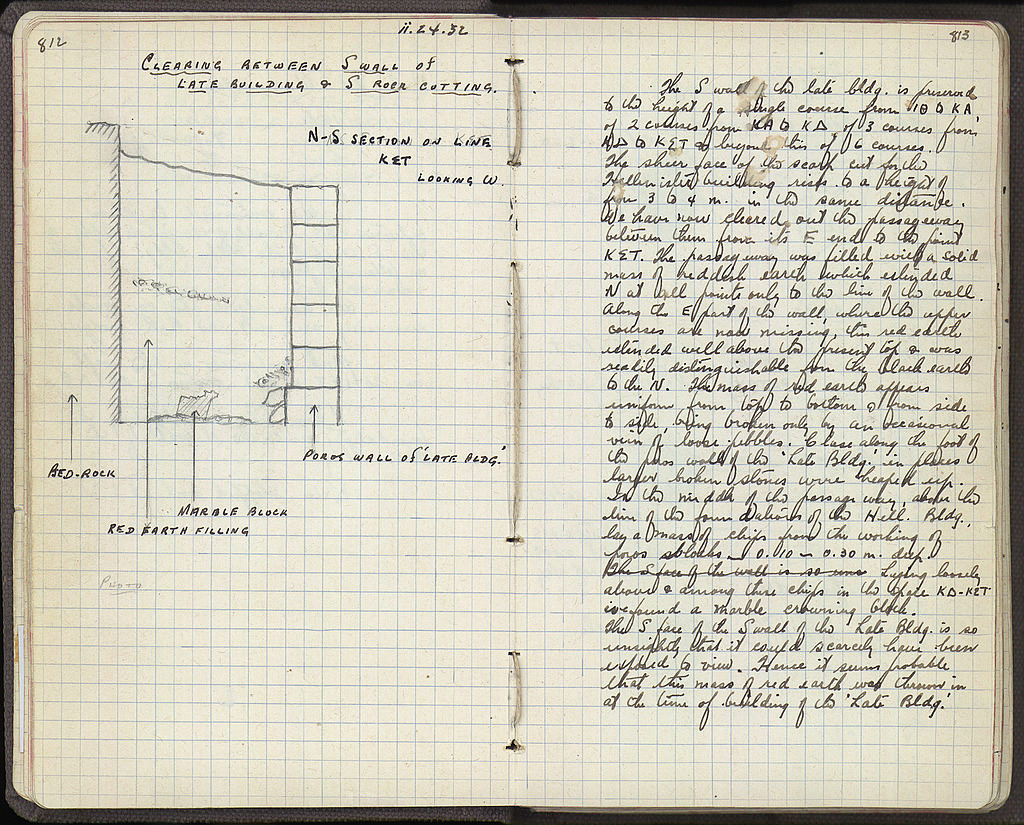 812
ii.24.32
CLEARING BETWEEN S WALL OF
LATE BUILDING & S ROCK CUTTING.
N-S SECTION ON LINE
KET
LOOKING W.
POROS WALL OF 'LATE BLDG.'
BED-ROCK
MARBLE BLOCK
RED EARTH FILLING
PHOTO
813
The S wall of the late bldg. is preserved
to the height of a single course from to KA,
of 2 courses from KA to KΔ, of 3 courses from
KΔ to KET & beyond this of 6 courses.
The sheer face of the scarp cut for the
Hellenistic building rises to a height of
from 3 to 4 m. in the same distance.
We have now cleared out the passageway
between them from its E end to the point
KET. The passageway was filled with a solid
mass of reddish earth which extended
N at all points only to the line of the wall.
Along the E part of the wall, where the upper
courses are now missing, this red earth
extended well above the present top & was
readily distinguishable from the black earth
to the N. The mass of red earth appears
uniform from top to bottom & from side
to side, being broken only by an occasional
vein of loose pebbles. Close along the foot of
the poros wall of the 'Late Bldg.' in places
larger broken stones were heaped up.
In the middle of the passage way, above the
line of the foundations of the Hell. Bldg.,
lay a mass of chips from the working of
poros blocks - 0.10 - 0.30 m. deep.
The S face of the wall is so uns Lying loosely
above & among these chips in the space KΔ-KET
we found a marble crowning block.
The S face of the S wall of the 'Late Bldg. is so
unsightly that it could scarcely have been
exposed to view. Hence it seems probable
that this mass of red earth was thrown in
at the time of building of the 'Late Bldg.'